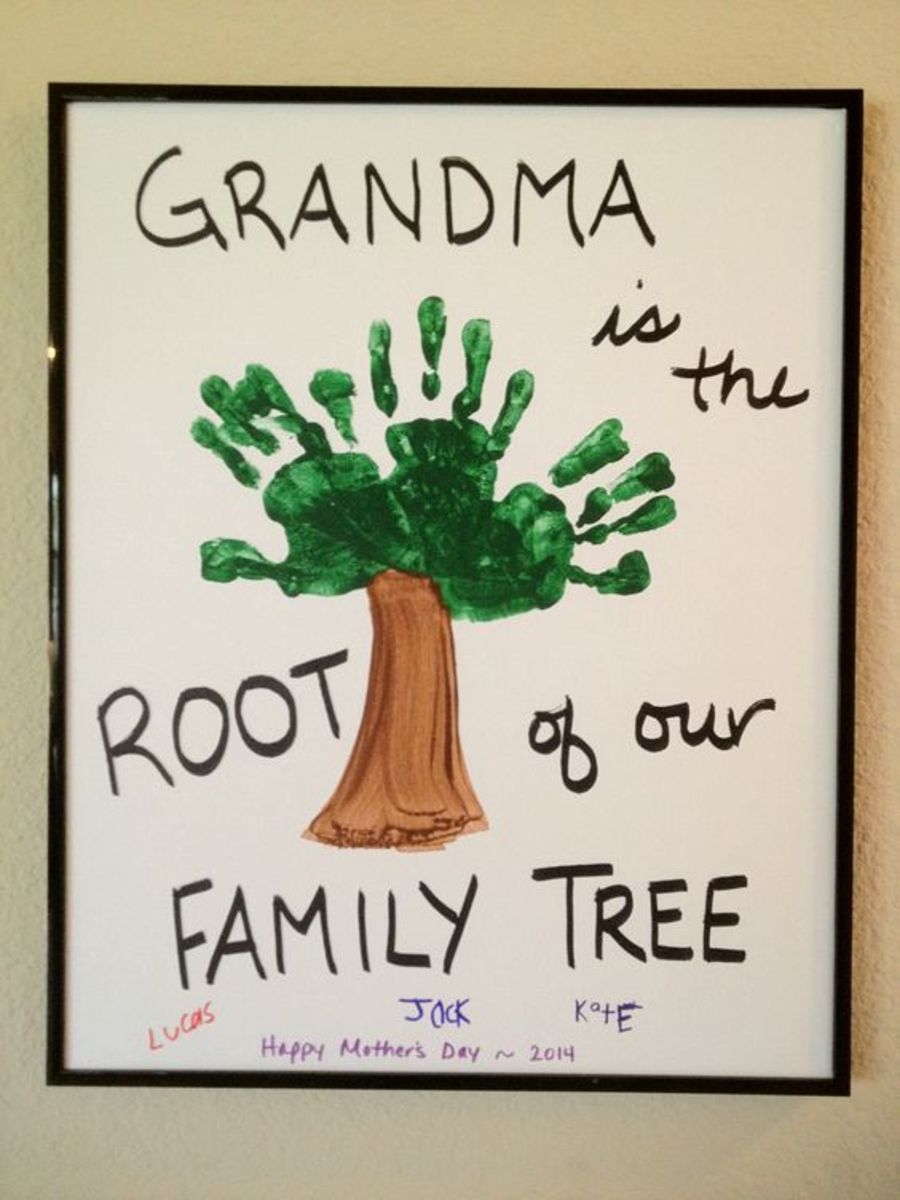 GRANDMA
is
the
ROOT of our
FAMILY TREE
Lucas JACK KatE
Happy Mother's Day ~ 2014